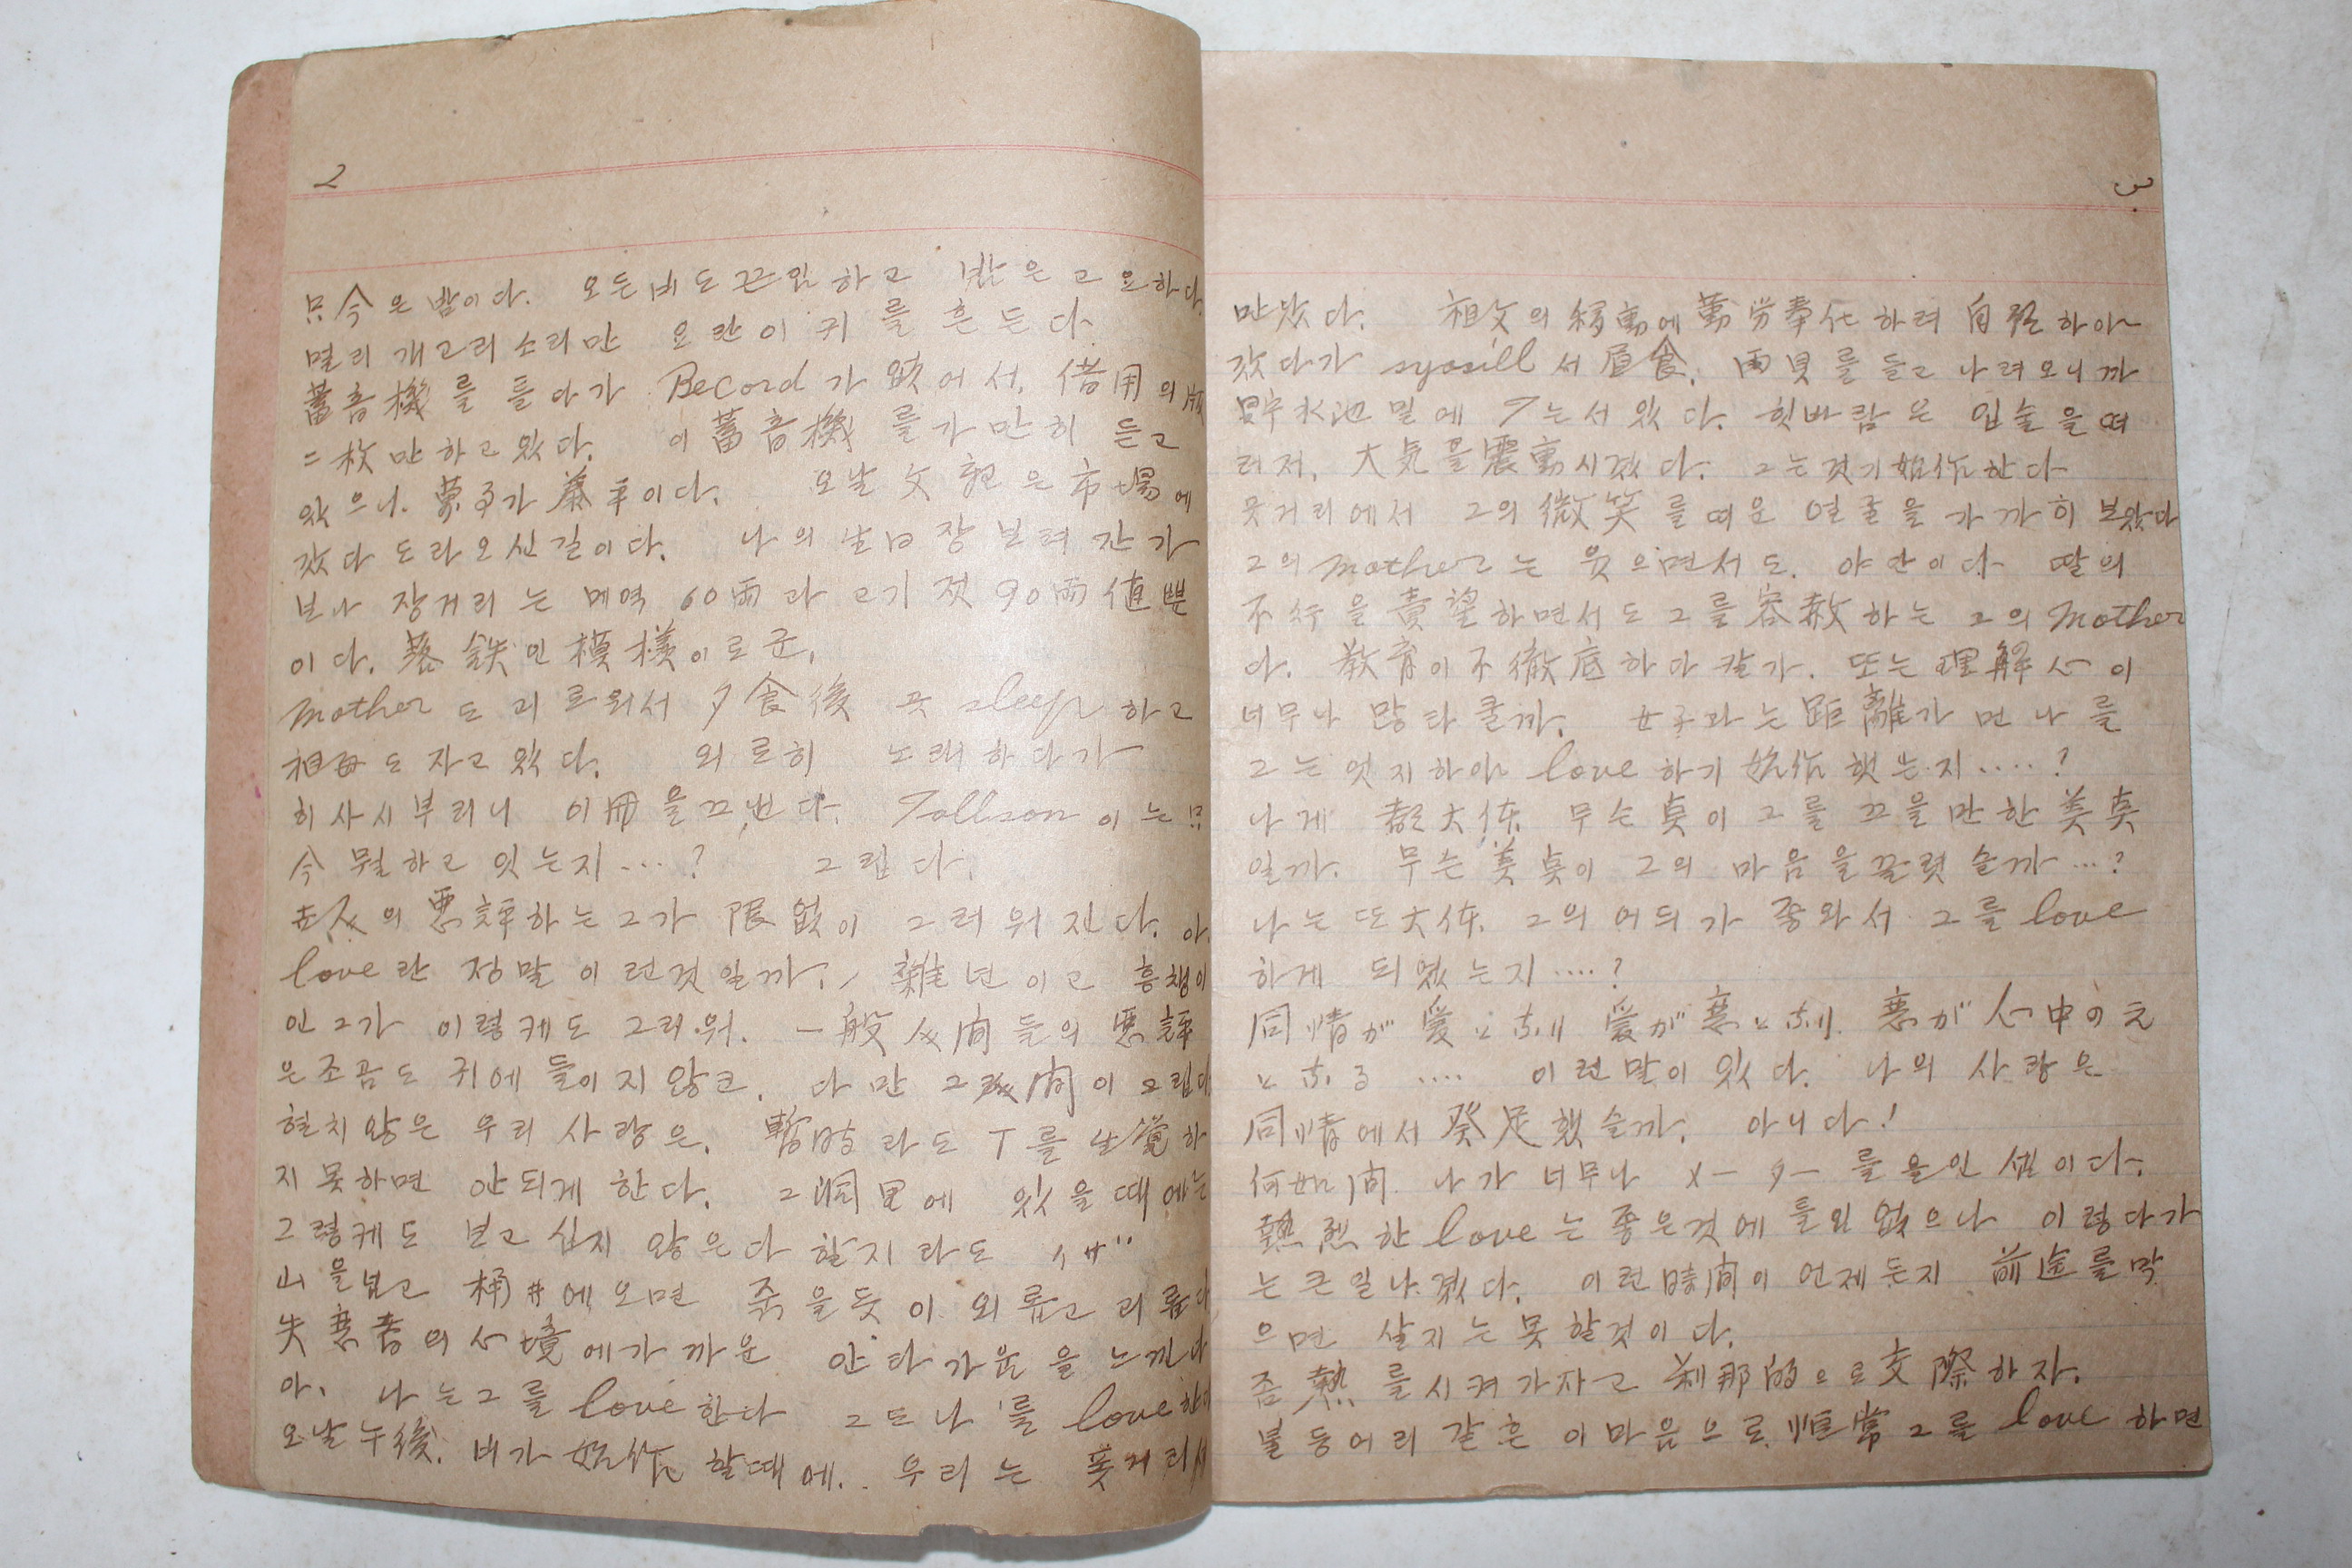 2
只今은 밤이다. 오든비도 끈임하고 밤은 고요하다.
멀리 개고리소리만 요란이 귀를 흔든다
蓄音機를 틀다가 Record가 없어서, 借用의 版
二枚만하고있다. 이 蓄音機를 가만히 듣고
있으니. 오날 父親은 市場에
갔다 도라오신길이다. 나의 生日장보려 간가
보나 장거리는 메역 60兩과 고기젓 90兩値뿐
이다. 落鉄인 模様이로군,
mother도 괴로워서 夕食後 곳 sleep하고
祖母도 자고있다. 외로히 노래하다가
히사시부리니 이冊을끄냈다. 이는 只
今 뭘하고 잇는지…? 그립다.
世人의 悪評하는그가 限없이 그러워진다. 아.
love란 정말 이런것일까. 雜년이고
인그가 이렇케도 그러워. 一般人間들의 悪評
은조곰도 귀에 들이지않고. 다만 그人間이 그립다
현치않은 우리사랑은. 暫時라도 T를 生覚하
지못하면 안되게한다. 그 洞里에 있을때에는
그렇케도 보고십지 않은다 할지라도
山을넘고 에오면 죽을듯이 외롭고 괴롭다
失恋者의 心境에가까운 안타가움을 느끼다
아. 나는그를 love한다 그도나를 love한다
오날午後. 비가 始作할때에. 우리는 못거리서
3.
만났다. 祖父의 移動에 勤労奉仕하려 하야
갔다가 서 昼食. 雨具를 들고 나려오니까
貯水池밑에 T는서있다. 힛바람은 입술을떠
러저. 大気를震動시겼다. 그는것기始作한다
못거리에서 그의 微笑를띠운 얼굴을 가까히 보았다
그의 mother는 웃으면서도. 야단이다 딸의
不行을 責望하면서도 그를容赦하는 그의 mother
다. 敎育이不徹底하다 할가. 또는理解心이
너무나 많타 쿨까. 女子과는距離가 먼나를
그는 엇지하야 love하기 始作햇는지....?
나게 都大体 무슨点이 그를 끄을만한美点
일까. 무슨美点이 그의 마음을끌렷슬까…?
나는또大体. 그의어듸가 좋와서 그를 love
하게 되였는지....?
同情が愛となり 愛が恋となり. 恋が心中のえ
となる .... 이런말이있다. 나의 사랑은
同情에서 発足했슬까. 아니다!
何如間 나가 너무나 를 이다.
熱烈한 love는 좋은것에틀임없으나 이렇다가
는큰일나겠다. 이런時間이 언제든지 前途를막
으면 살지는못할것이다.
좀熱를시켜가자고 刹那的으로交際하자.
불등어리같흔 이마음으로 恒常그를 love 하면